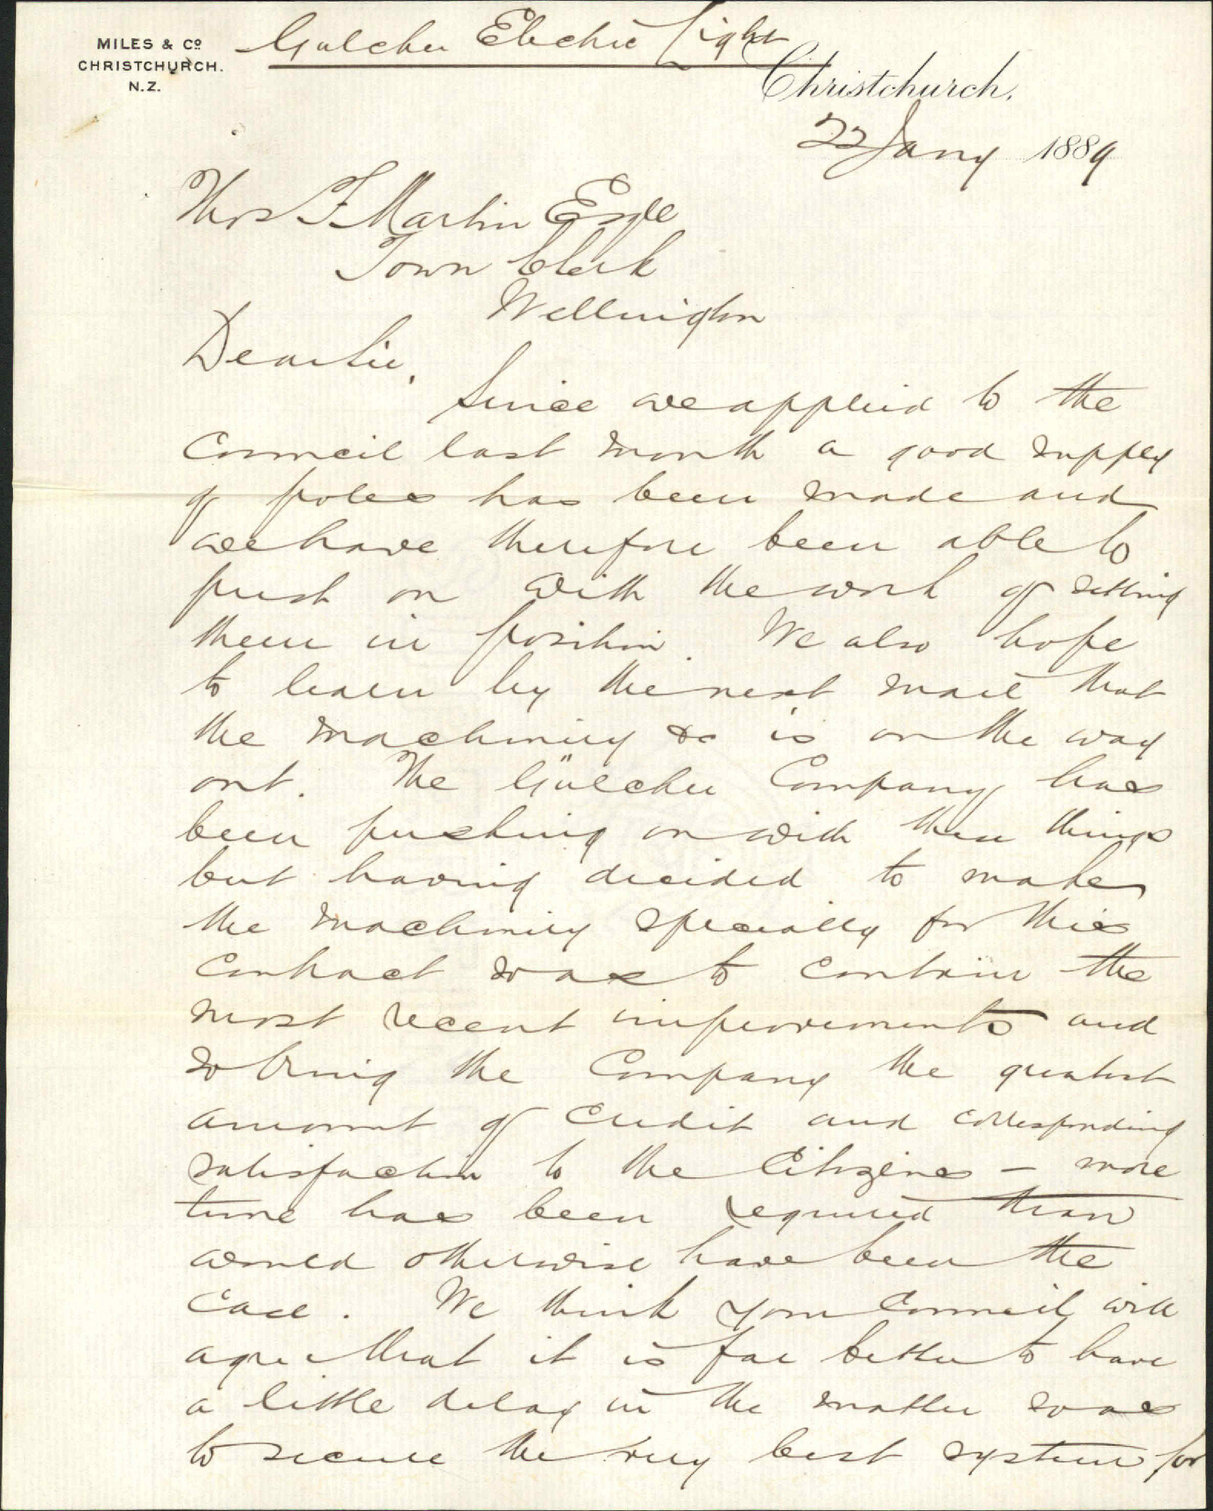 MILES & Co
CHRISTCHURCH.
N.Z.
Gulcher Electric Light
Christchurch,
22 Jany 1889
Thos F Martin Esqre
Town Clerk
Wellington
Dear Sir,
Since we applied to the
Council last month a good supply
of poles has been made and
we have therefore been able to
push on with the work of setting
them in position. We also hope
to learn by the next mail that
the machinery &c is on the way
out. The Gülcher Company has
been pushing on with these things
but having decided to make
the machinery specially for this
contract so as to contain the
most recent improvements and
so bring the Company the greatest
amount of credit and corresponding
satisfaction to the Citizens – more
time has been required than
would otherwise have been the
case. We think your Council will
agree that it is far better to have
a little delay in the matter so as
to secure the very best system for